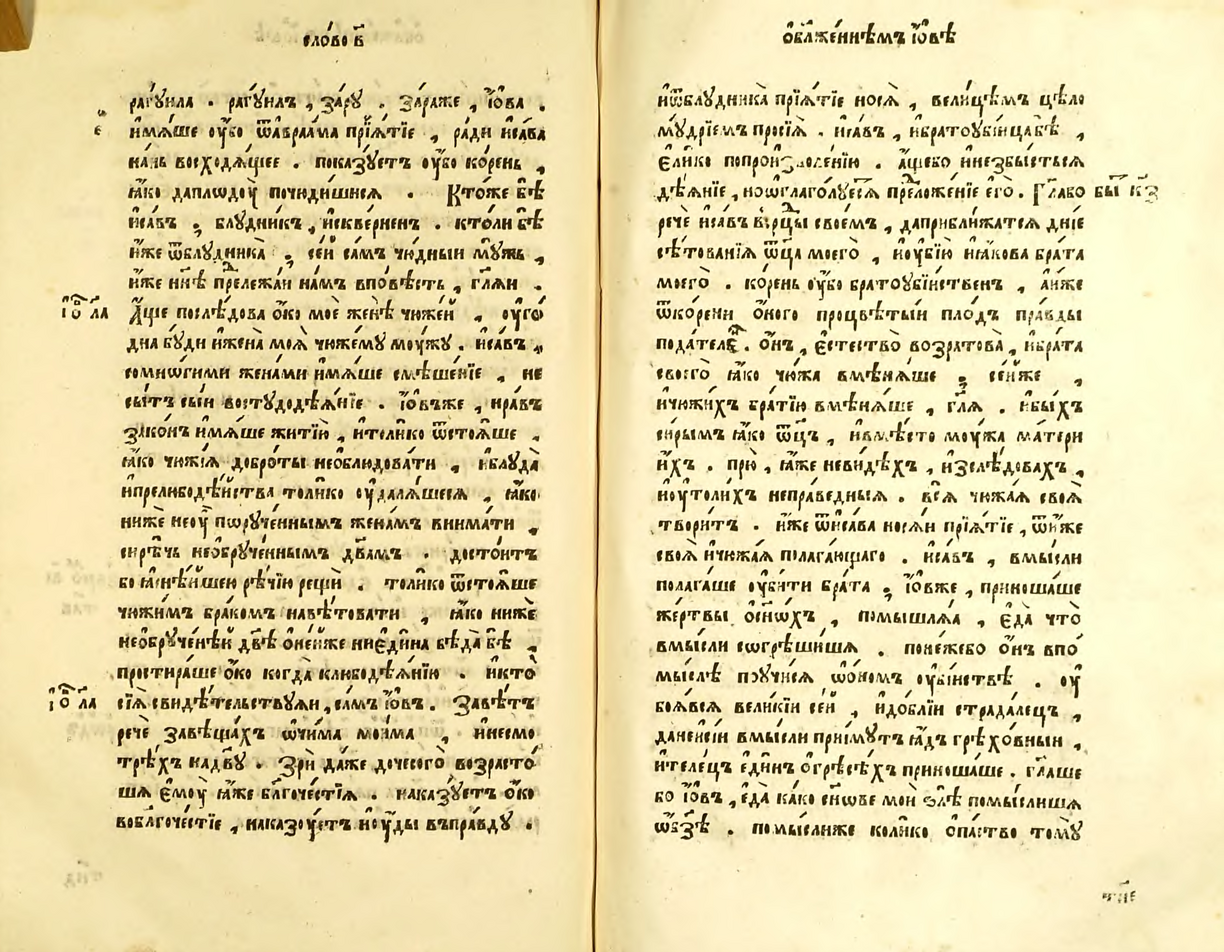 сло́во в҃
рагꙋ́ила . рагꙋ́илъ , зарꙋ . зара́же , і҆́ова .
е҃
и҆мѧ́ше ᲂу҆́бо ѿавраа́ма прїѧ́тїе , ра́ди и҆са́ва
на́нь восходѧ́щее . пока́зꙋетъ ᲂу҆́бо ко́рень ,
ꙗ҆́ко даплѡдоу̀ почюди́шисѧ . Кто́же бѣ̀
и҆са́въ , блꙋдни́къ , и҆скве́рненъ . кто́ли бѣ̀
и҆́же ѿблꙋдника̀ , се́й са́мъ чю́дныи мꙋ́жь ,
и҆́же нн҃ѣ прележа́и на́мъ впо́вѣсть , гл҃ѧи .
і҆́о гл҃а л҃а
А҆́ще послѣ́дова ѻ҆́ко моѐ женѣ̀ чюже́й , ᲂу҆го́
дна бꙋ́ди и҆жена̀ моѧ̀ чюже́мꙋ моу́жꙋ . и҆са́въ ,
сомно́гими жена́ми и҆мѧ́ше смѣше́нїе , не
сы́тъ сы́и востꙋдодѣѧ́нїе . і҆́овъже , нра́въ
зако́нъ и҆мѧ́ше житїю̀ , и҆толи́ко ѿстоѧ́ше ,
ꙗ҆́ко чюжїѧ̀ добро́ты необлюдова́ти , и҆блꙋда̀
и҆прелюбодѣ́йства толи́ко ᲂу҆далѧ́шесѧ , ꙗ҆́ко
нижѐ неоу҆̀ пѡрꙋче́ннымъ жена́мъ внима́ти ,
си́рѣчь необрꙋче́ннымъ дв҃амъ . досто́итъ
бо ꙗ҆снѣ́йшею рѣ́чїю рещѝ . толи́ко ѿстоѧ́ше
чюжи́мъ бра́комъ навѣ́товати , ꙗ҆́ко нижѐ
необрꙋче́нѣй дв҃ѣ ѻ҆не́йже ниє҆ди́на бѣда̀ бѣ̀ ,
простира́ше ѻ҆́ко когда̀ клюбодѣѧ́нїю . и҆кто̀
і҆́о гл҃а л҃а
сїѧ̀ свидѣ́тельствꙋѧи , са́мъ і҆́овъ . Завѣ́тъ
речѐ завѣща́хъ ѻ҆чи́ма мои́ма , и҆несмо
трѣ́хъ надв҃ꙋ . Зрѝ да́же дочесо́го возрасто́
шѧ є҆моу̀ ꙗ҆́же бл҃гоче́стїѧ . наказꙋ́етъ ѻ҆́ко
вобл҃гоче́стїе , наказоу́етъ и҆оу҆́ды въпра́вдꙋ .
ѡ҆бл҃же́ннѣмъ і҆́овѣ
и҆ѿблꙋдника̀ прїѧ́тїе носѧ̀ , вели́цѣмъ цѣло
мꙋ́дрїемъ просїѧ̀ . и҆са́въ , и҆братоуби́йца бѣ̀ ,
є҆ли́ко попроизволе́нїю . а҆́щебо и҆незбы́стьсѧ
дѣѧ́нїе , ноѡ҆глаго́лꙋесѧ преложе́нїе є҆го̀ . Гл҃або бы҃ к҃з
речѐ и҆са́въ в҆срⷣцы свое́мъ , даприбли́жатсѧ дні́е
сѣ́тованїѧ ѿца̀ моего̀ , и҆оу҆бїю̀ и҆ꙗ҆́кова бра́та
моего̀ . ко́рень ᲂу҆́бо братоубі́йственъ , а҆и҆́же
ѿко́рени ѻ҆́ного процвѣ́тыи пло́дъ пра́вды
пода́тель . ѻ҆́нъ , є҆стество̀ возратова̀ , и҆бра́та
своего̀ ꙗ҆́ко чю́жа вмѣнѧ́ше , се́йже ,
и҆чюжи́хъ бра́тїю вмѣнѧ́ше , гл҃ѧ . и҆бы́хъ
си́рымъ ꙗ҆́ко ѻ҆ц҃ъ , и҆вмѣ́сто моу́жа ма́тери
и҆́хъ . прю̀ , ꙗ҆́же неви́дѣхъ , и҆зслѣ́довахъ ,
и҆оу҆толи́хъ непра́ведныѧ . всѧ̀ чюжа́ѧ своѧ̀
твори́тъ . и҆́же ѿи҆са́ва носѧ́и прїѧ́тїе , ѿи҆́же
своѧ̀ и҆чюжа́ѧ полага́ющаго . и҆са́въ , вмы́сли
полага́ше ᲂу҆би́ти бра́та , і҆́овже , приноша́ше
же́ртвы ѻ҆сн҃о́хъ , помышлѧ́ѧ , є҆да̀ что̀
вмы́сли согрѣши́шѧ . поне́жебо ѻ҆́нъ впо
мы́слѣ поучи́сѧ ѡ҆́номъ ᲂу҆бі́йствѣ . ᲂу҆
боѧ́всѧ вели́кїи се́й , и҆до́блїи страда́лецъ ,
данеси́и вмы́сли прїи́мꙋтъ ꙗ҆́дъ грѣхо́вныи ,
и҆теле́цъ є҆ди́нъ ѻ҆грѣсѣ́хъ приноша́ше . гл҃аше
бо і҆́овъ , є҆да̀ ка́ко сн҃ове моѝ ѕлѣ̀ помы́слишѧ
ѡ҆бз҃ѣ . помы́слиже коли́ко ѻ҆па́ство томꙋ̀